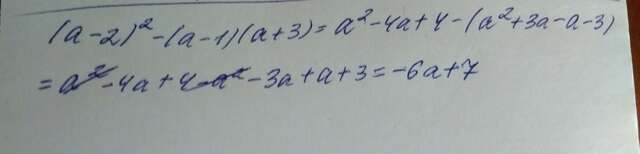 (a-2)²-(a-1)(a+3)=a²-4a+4-(a²+3a-a-3)
=a²-4a+4-a²-3a+a+3=-6a+7